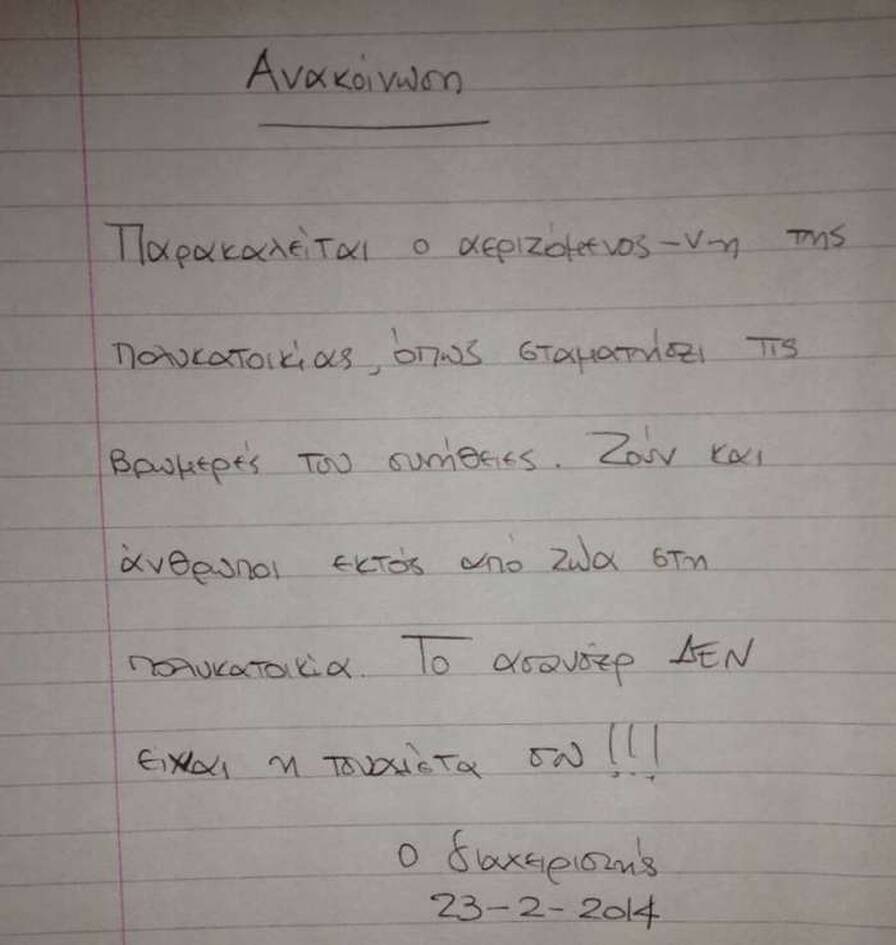 Ανακοίνωση
Παρακαλείται ο αεριζόμενος-ν-η της
πολυκατοικίας, όπως σταματήσει τις
βρωμερές του συνήθειες. Ζούν και
άνθρωποι εκτός από ζώα στη
πολυκατοικία. Το ασανσέρ ΔΕΝ
είναι η τουαλέτα σου!!!
Ο διαχειριστής
23-2-2014